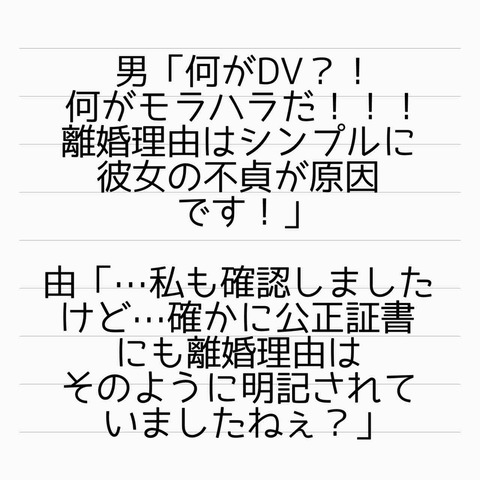 男「何がDV？！
何がモラハラだ！！！
離婚理由はシンプルに
彼女の不貞が原因
です！」
由「…私も確認しました
けど…確かに公正証書
にも離婚理由は
そのように明記されて
いましたねぇ？」